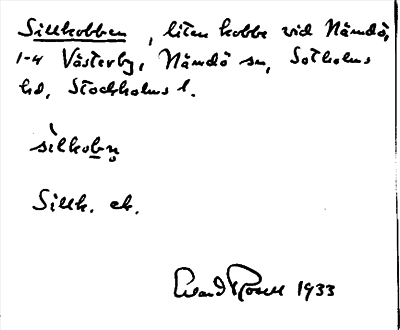 Sillkobben, liten kobbe vid Nämdö,
1-4 Västerby, Nämdö sn, Sotholms
hd, Stockholms l.
sìlkobn̥
Sillk. ek.
Rosell 1933